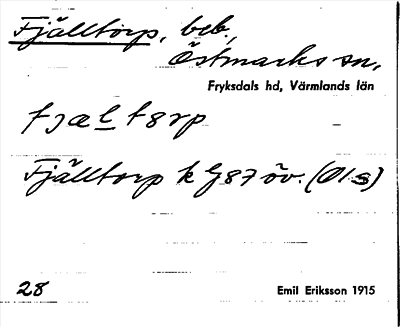 Fjälltorp, beb.,
Östmarks sn,
Fryksdals hd, Värmlands län
fjæltɔrp
Fjälltorp k G 87 öv. (Ols)
28 Emil Eriksson 1915